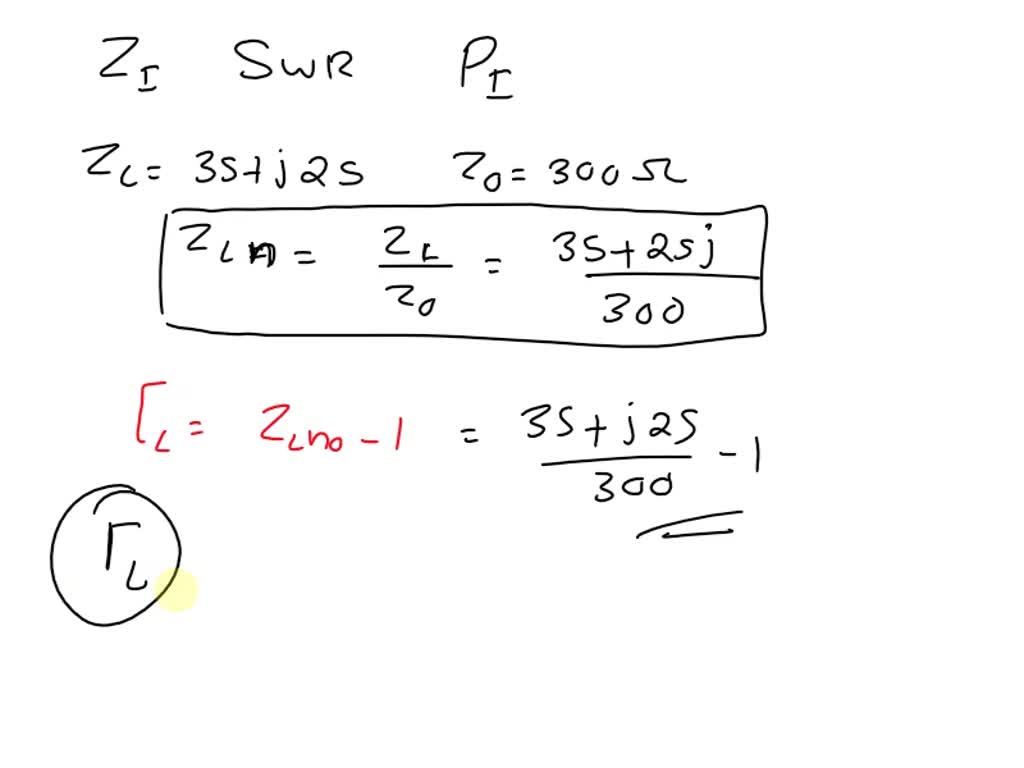 Z_I SWR P_I
Z_L = 35+j25 Z_0 = 300Ω
Z_Ln = Z_L/Z_0 = 35+25j/300
Γ_L = Z_Lno - 1 = 35+j25/300 - 1
Γ_L